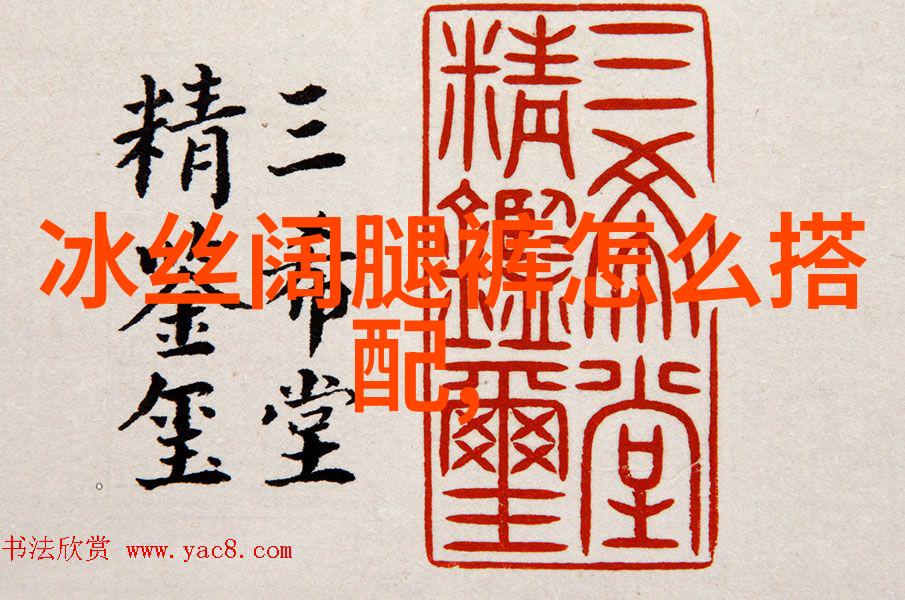 三希堂
精鉴玺
三希堂
精鑑璽
冰丝阔腿裤怎么搭
配,
书法欣赏 www.yac8.com